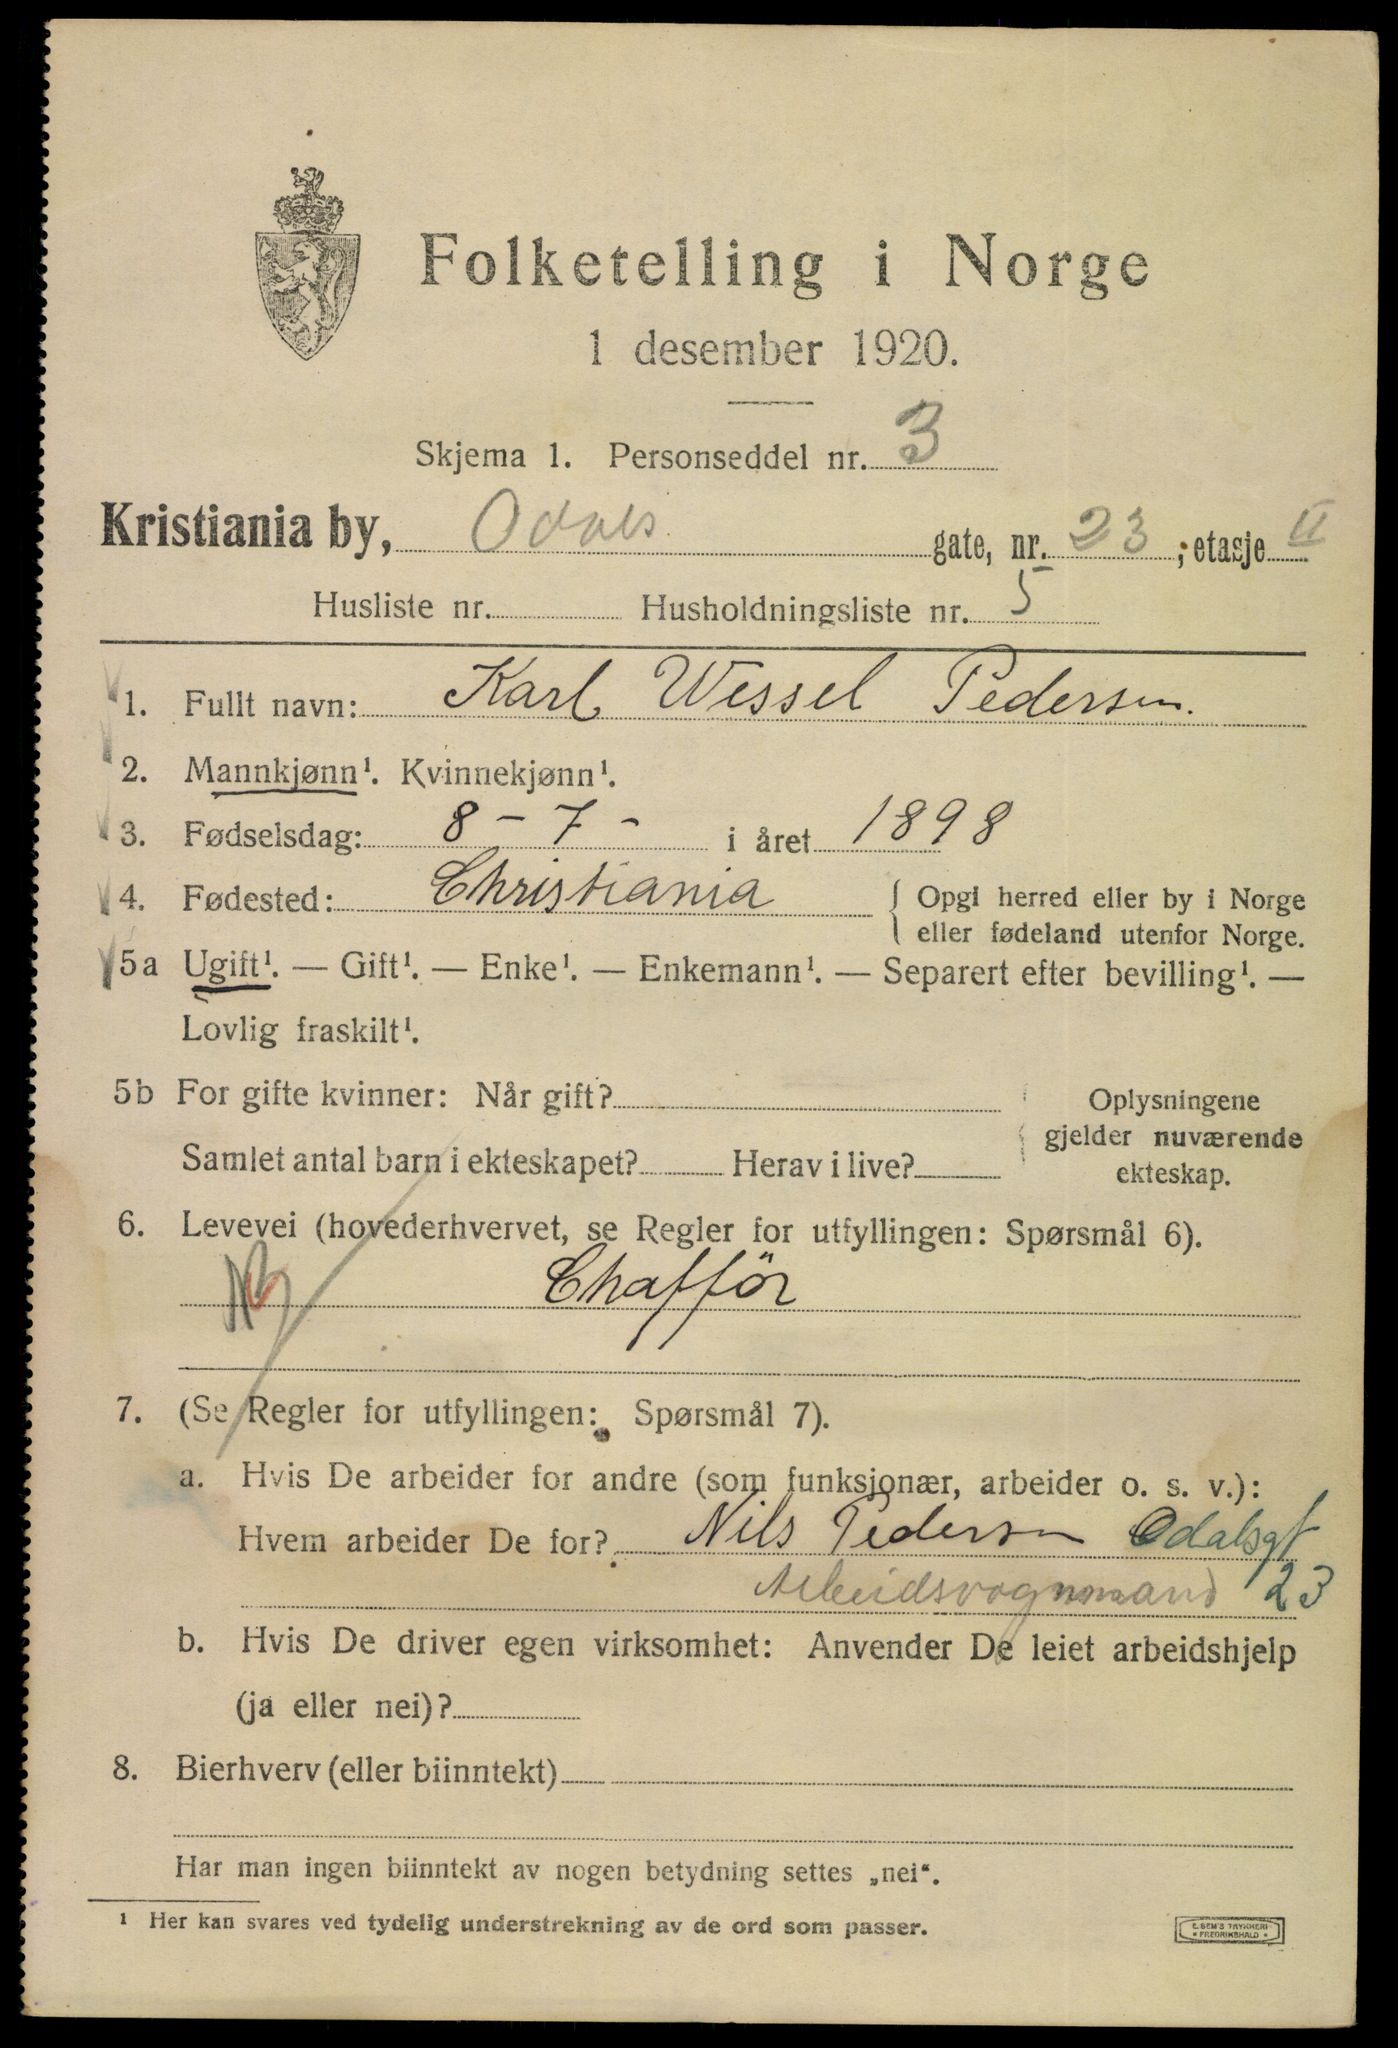 Folketelling i Norge
1 desember 1920.
Skjema 1. Personseddel nr. 3
Kristiania by, Odals gate, nr. 23, etasje II
Husliste nr. Husholdningsliste nr. 5
1. Fullt navn: Karl Wessel Pedersen.
2. Mannkjønn¹. Kvinnekjønn¹.
3. Fødselsdag: 8 - 7 - i året 1898
4. Fødested: Christiania { Opgi herred eller by i Norge
{ eller fødeland utenfor Norge.
5a Ugift¹. — Gift¹. — Enke¹. — Enkemann¹. — Separert efter bevilling¹. —
Lovlig fraskilt¹.
5b For gifte kvinner: Når gift? Oplysningene
gjelder nuværende
Samlet antal barn i ekteskapet? Herav i live? ekteskap.
6. Levevei (hovederhvervet, se Regler for utfyllingen: Spørsmål 6).
Chafför
7. (Se Regler for utfyllingen: Spørsmål 7).
a. Hvis De arbeider for andre (som funksjonær, arbeider o. s. v.):
Hvem arbeider De for? Nils Pedersen Odalsgt
Arbeidsvognmand 23
b. Hvis De driver egen virksomhet: Anvender De leiet arbeidshjelp
(ja eller nei)?
8. Bierhverv (eller biinntekt)
Har man ingen biinntekt av nogen betydning settes „nei“.
¹ Her kan svares ved tydelig understrekning av de ord som passer.
E. SEM'S TRYKKERI
* FREDRIKSHALD *